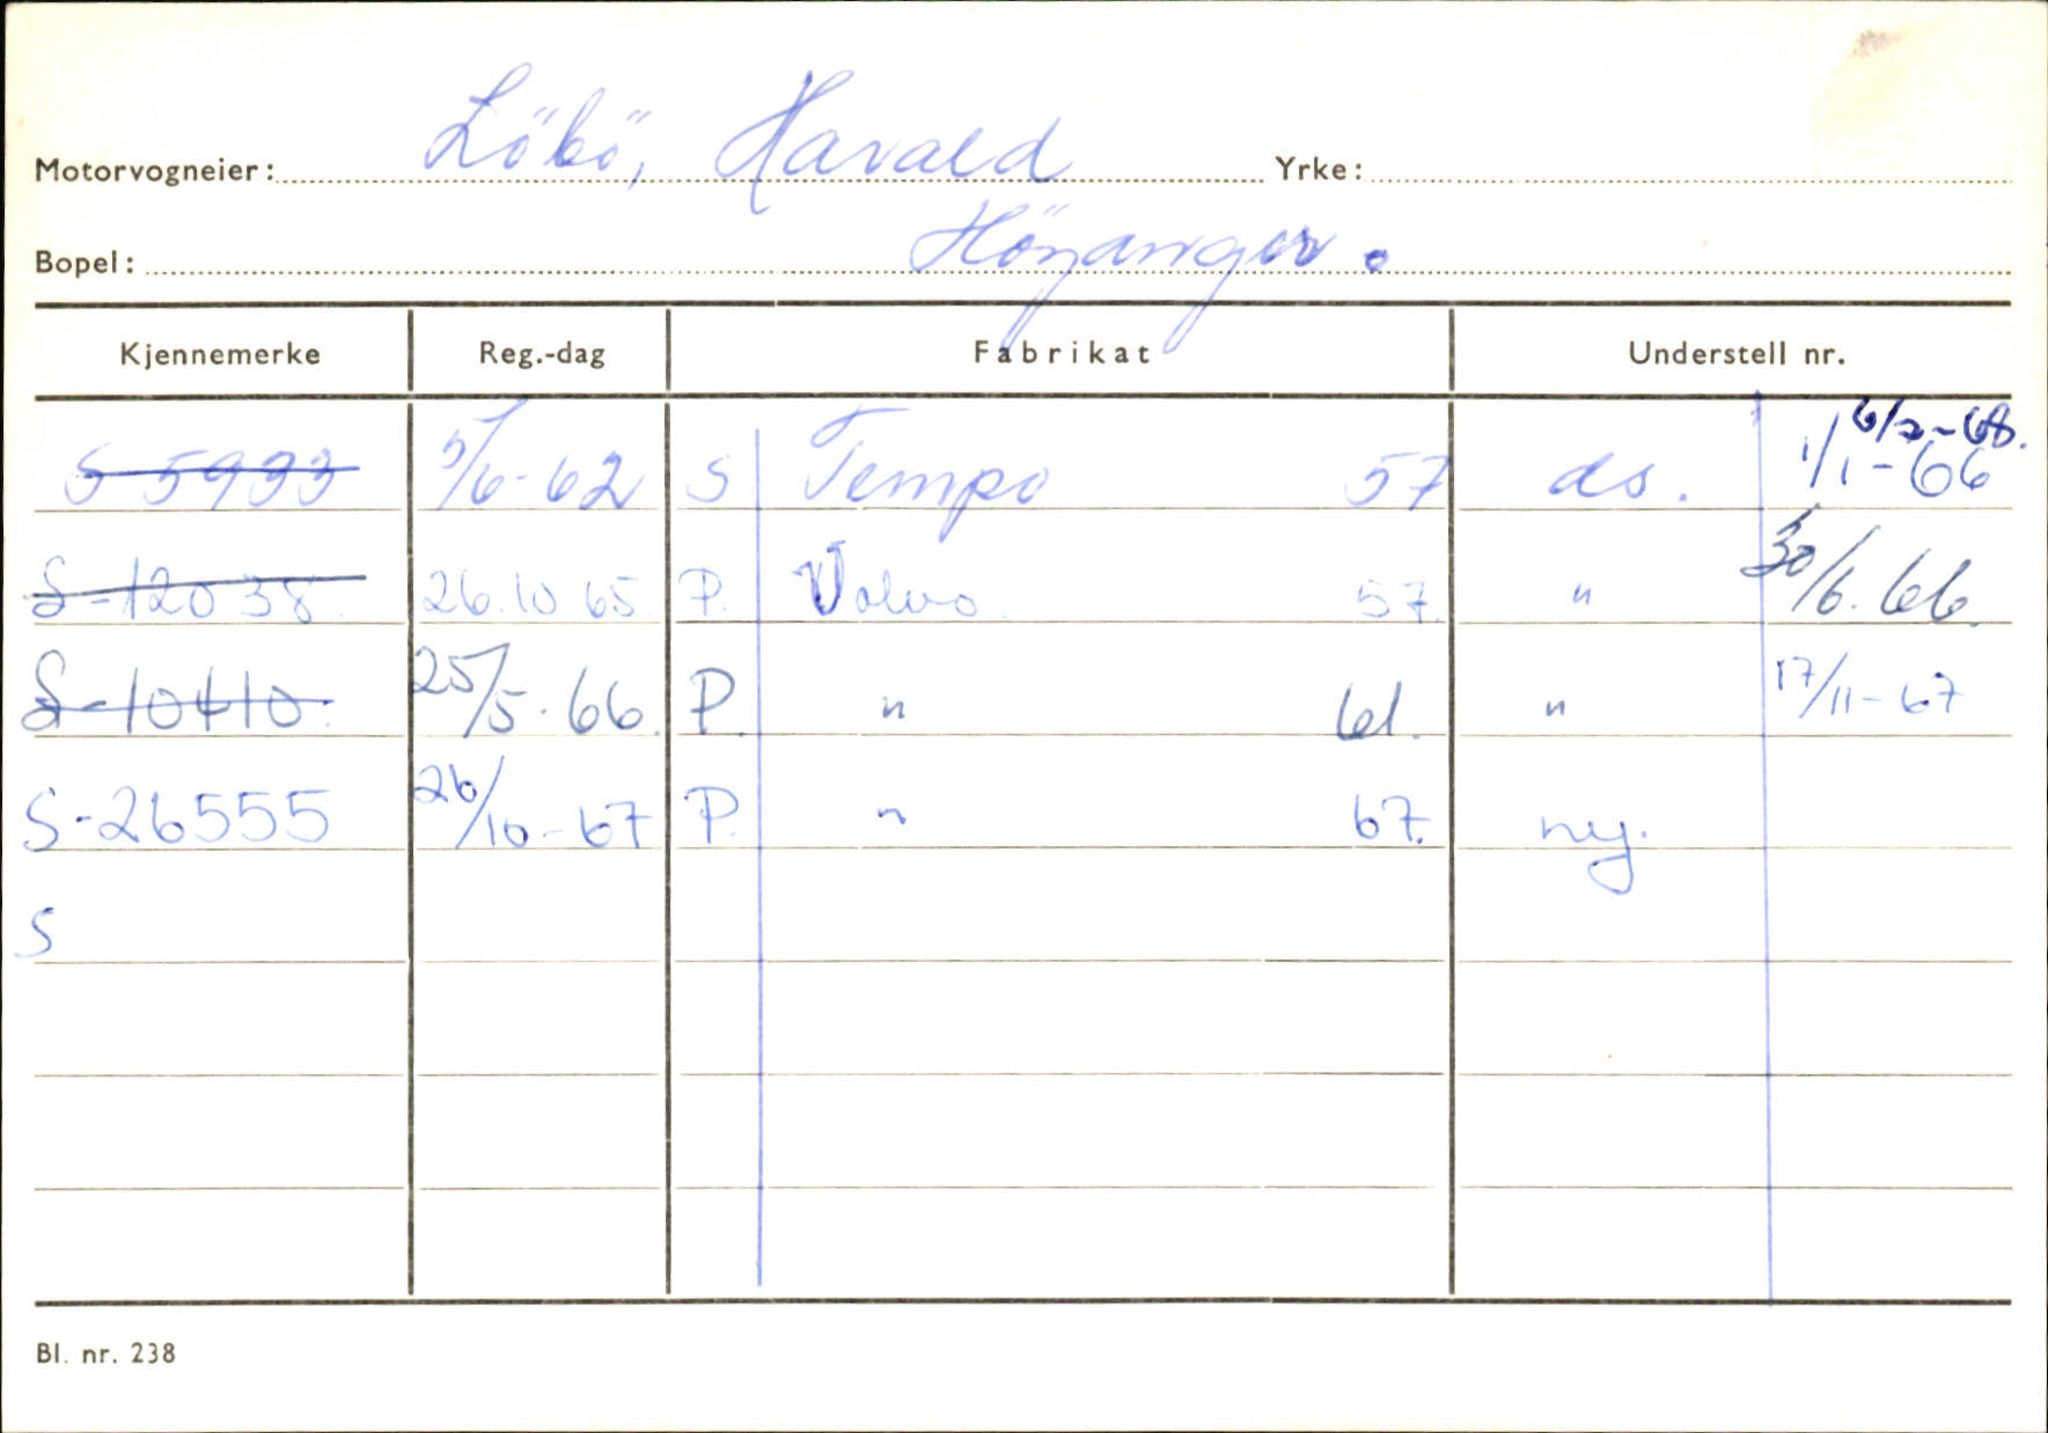 Motorvogneier: Löbö, Harald Yrke:
Bopel: Höyanger.
Kjennemerke Reg.-dag Fabrikat Understell nr.
6/2-68.
S 5933 5/6-62 S Tempo 57 ds. 1/1-66
S-12038. 26.10 65. P. Volvo. 57. " 30/6. 66.
S-10410. 25/5. 66. P. " 61. " 17/11-67
S-26555 26/10-67 P. " 67. ny.
S
Bl. nr. 238